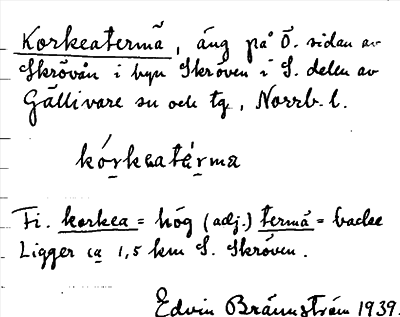 Korkeatermä, äng på Ö. sidan av
Skrövån i byn Skröven i S. delen av
Gällivare sn och tg, Norrb. l.
kórkeatέrmα
Fi. korkea = hög (adj.) termä = backe
Ligger ca 1,5 km S. Skröven.
Edvin Brännström 1939.